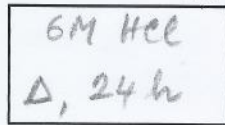 6M HCl
Δ, 24 h